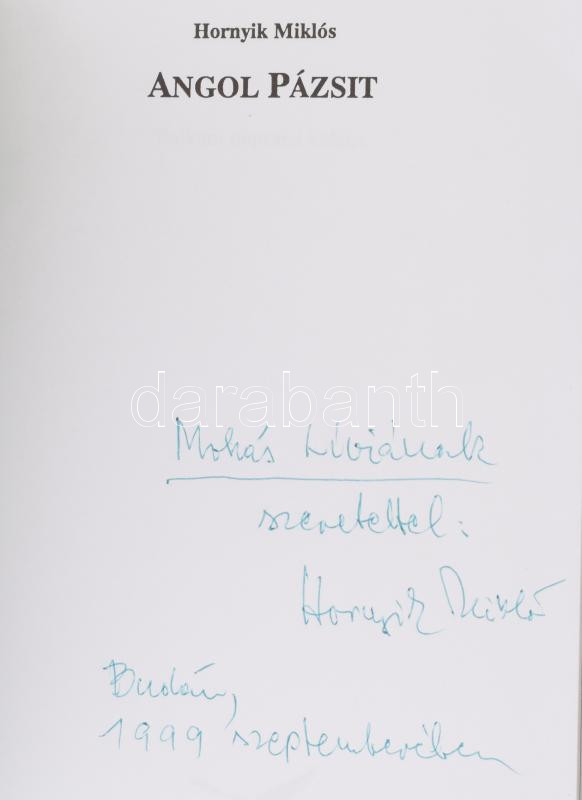 Hornyik Miklós
ANGOL PÁZSIT
darabanth
Mohás Líviának
szeretettel:
Hornyik Miklós
Budán,
1999 szeptemberében